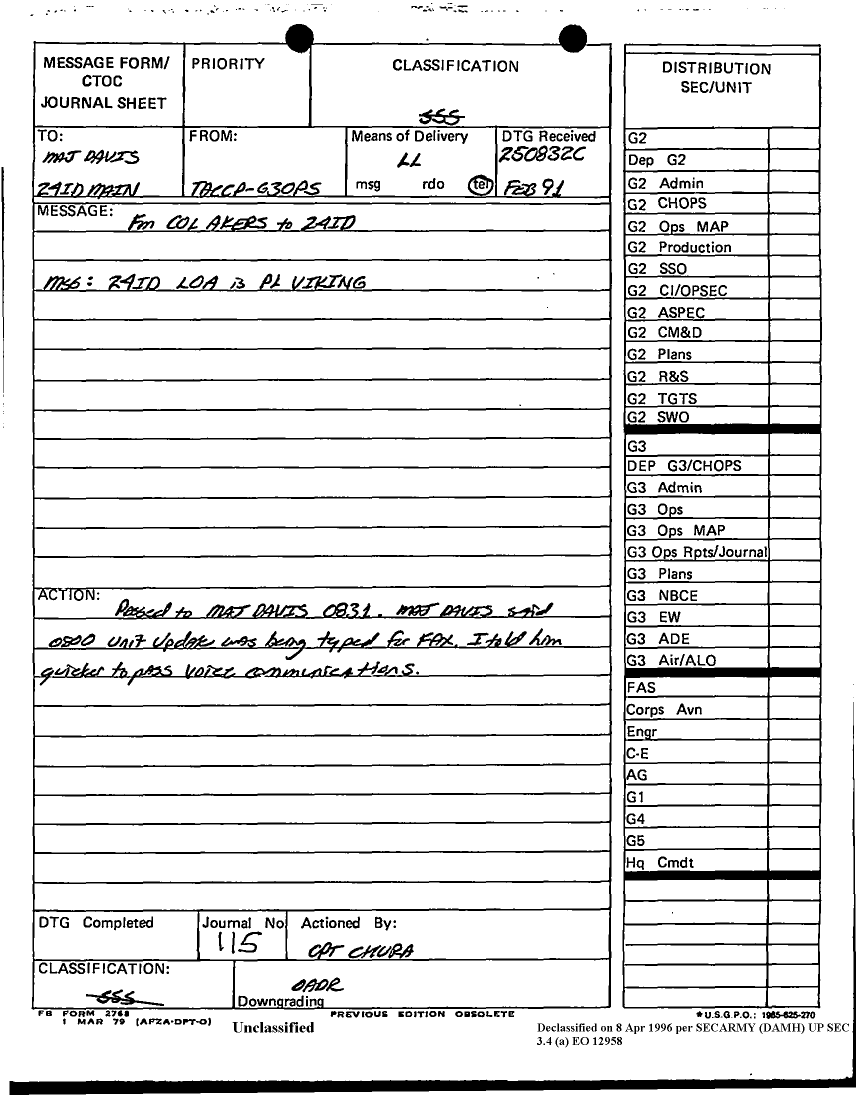 MESSAGE FORM/
CTOC
JOURNAL SHEET
PRIORITY
CLASSIFICATION
SSS
TO:
MAJ DAVIS
24ID MAIN
FROM:
TACCP-G3OPS
Means of Delivery
LL
msg rdo tel
DTG Received
250832C
FEB 91
MESSAGE:
Fm COL AKERS to 24ID
MSG: 24ID LOA is PL VIKING
ACTION:
Passed to MAJ DAVIS 0831. MAJ DAVIS said
0800 Unit Update was being typed for FAX. I told him
quicker to pass voice communications.
DTG Completed
Journal No
115
Actioned By:
CPT CHURA
CLASSIFICATION:
SSS
OADR
Downgrading
DISTRIBUTION
SEC/UNIT
G2
Dep G2
G2 Admin
G2 CHOPS
G2 Ops MAP
G2 Production
G2 SSO
G2 CI/OPSEC
G2 ASPEC
G2 CM&D
G2 Plans
G2 R&S
G2 TGTS
G2 SWO
G3
DEP G3/CHOPS
G3 Admin
G3 Ops
G3 Ops MAP
G3 Ops Rpts/Journal
G3 Plans
G3 NBCE
G3 EW
G3 ADE
G3 Air/ALO
FAS
Corps Avn
Engr
C-E
AG
G1
G4
G5
Hq Cmdt
FB FORM 2768
1 MAR 79 (AFZA-DPT-O)
Unclassified
PREVIOUS EDITION OBSOLETE
*U.S.G.P.O.: 1985-625-270
Declassified on 8 Apr 1996 per SECARMY (DAMH) UP SEC
3.4 (a) EO 12958